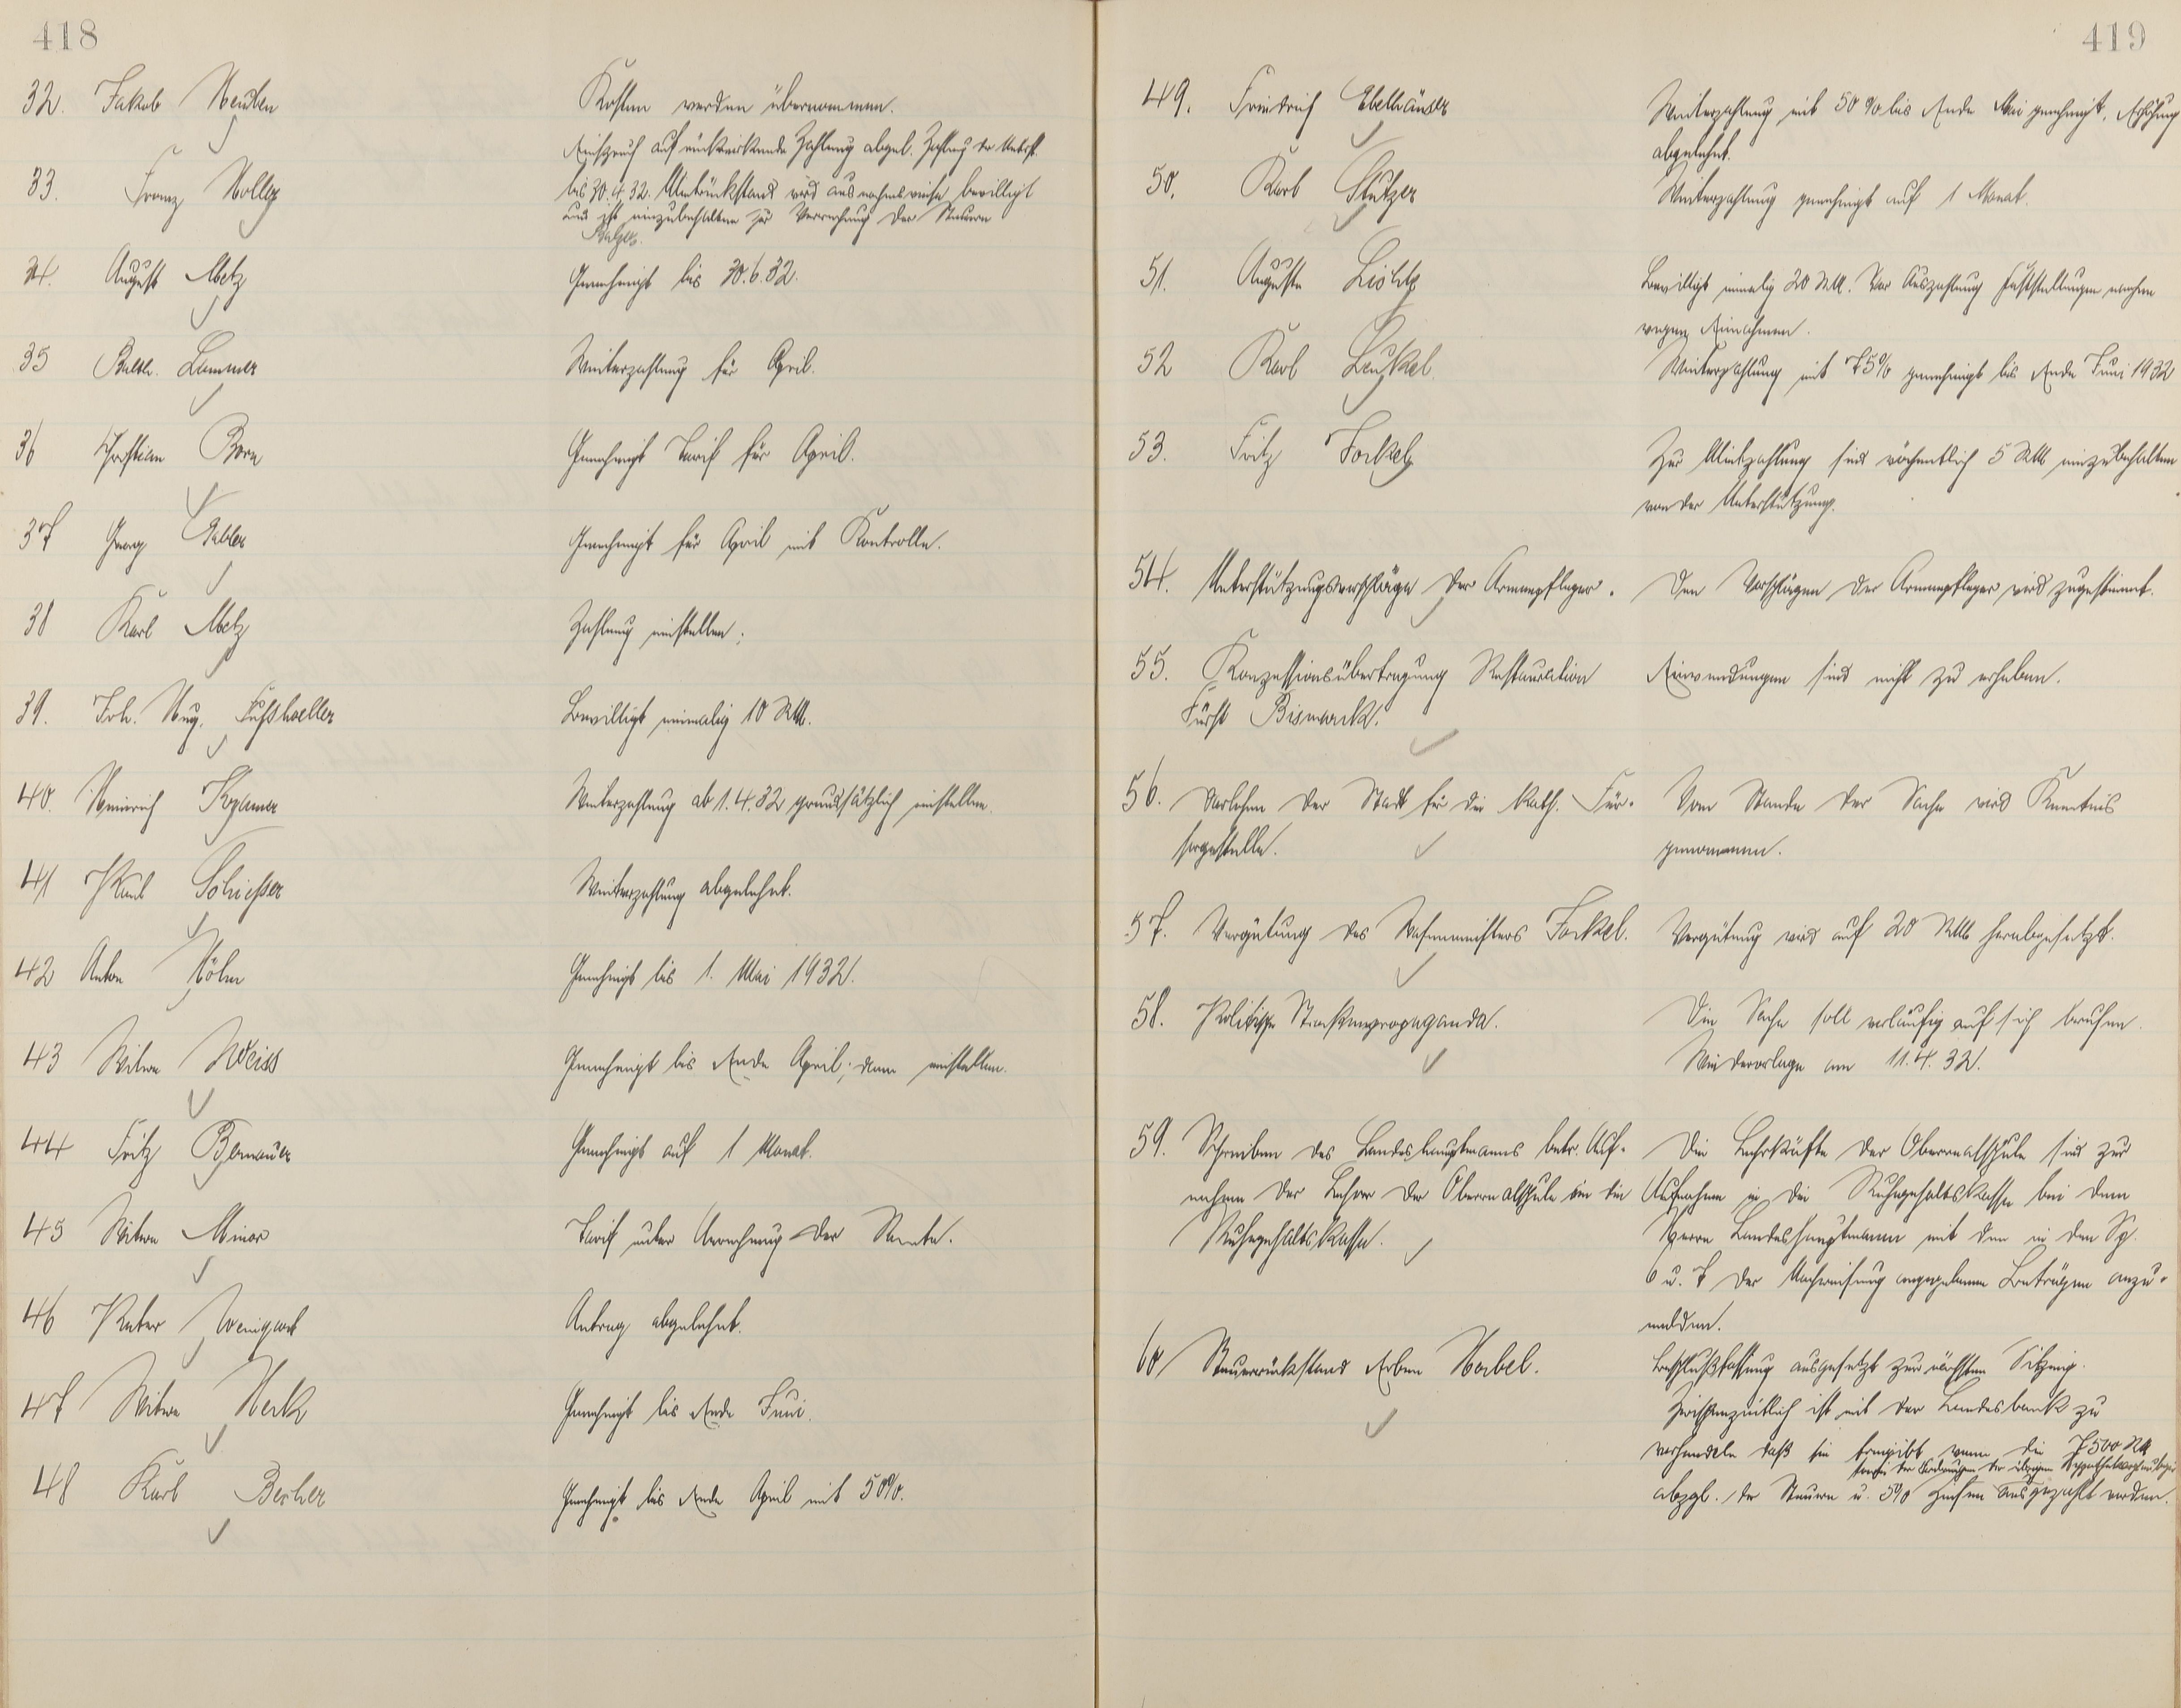 418
32. Jakob Neuben
Kosten werden übernommen.
33. Franz Nolly
Einspruch auf rückwirkende Zahlung abgel. Zahlung der Unterst.
bis 30.4.32. Mietrückstand wird ausnahmsweise bewilligt
und ist einzubehalten zur Verrechnung der Steuern
34. August Metz
Genehmigt bis 30.6.32.
35 Balth. Lammer
Weiterzahlung für April.
36 Christian Born
Genehmigt Tarif für April.
37 Georg Gabler
Genehmigt für April mit Kontrolle.
38 Karl Metz
Zahlung einstellen.
39. Joh. Aug. Fußhoeller
Bewilligt einmalig 10 RM.
40. Heinrich Krämer
Weiterzahlung ab 1.4.32 grundsätzlich einstellen.
41 Paul Schiesser
Weiterzahlung abgelehnt.
42 Anton Höhn
Genehmigt bis 1. Mai 1932.
43 Witwe Weiss
Genehmigt bis Ende April; dann einstellen.
44 Fritz Bernauer
Genehmigt auf 1 Monat.
45 Witwe Minor
Tarif unter Anrechnung der Rente.
46 Peter Weingart
Antrag abgelehnt.
47 Witwe Herk
Genehmigt bis Ende Juni.
48 Karl Becher
Genehmigt bis Ende April mit 50%.
419
49. Friedrich Ebelhäuser
Weiterzahlung mit 50% bis Ende Mai genehmigt. Erhöhung
abgelehnt.
50. Karl Stutzer
Weiterzahlung genehmigt auf 1 Monat.
51. Auguste
Bewilligt einmalig 20 RM. Vor Auszahlung Feststellungen machen
wegen Einnahmen.
52 Karl Leukel
Weiterzahlung mit 75% genehmigt bis Ende Juni 1932
53. Fritz Forkel
Zur Mietzahlung sind wöchentlich 5 RM einzubehalten
von der Unterstützung.
54. Unterstützungsvorschläge der Armenpfleger.
Den Vorschlägen der Armenpfleger wird zugestimmt.
55. Konzessionsübertragung Restauration
Fürst Bismarck.
Einwendungen sind nicht zu erheben.
56. Darlehen der Stadt für die Kath. Für-
sorgestelle.
Vom Stande der Sache wird Kenntnis
genommen.
57. Vergütung des Wasenmeisters Forkel.
Vergütung wird auf 20 RM herabgesetzt.
58. Politische Strassenpropaganda.
Die Sache soll vorläufig auf sich beruhen.
Wiedervorlage am 11.4.32.
59. Schreiben des Landeshauptmanns betr. Auf-
nahme der Lehrer der Oberrealschule in die
Ruhegehaltskasse.
Die Lehrkräfte der Oberrealschule sind zur
Aufnahme in die Ruhegehaltskasse bei dem
Herrn Landeshauptmann mit den in den Sp.
6 u. 7 der Nachweisung angegebenen Beträgen anzu-
melden.
60 Steuerrückstand Erben Nabel.
Beschlußfassung ausgesetzt zur nächsten Sitzung.
Zwischenzeitlich ist mit der Landesbank zu
verhandeln daß sie freigibt wenn die 7500 RM
abzgl. der Steuern u. 5% Zinsen ausgezahlt werden.